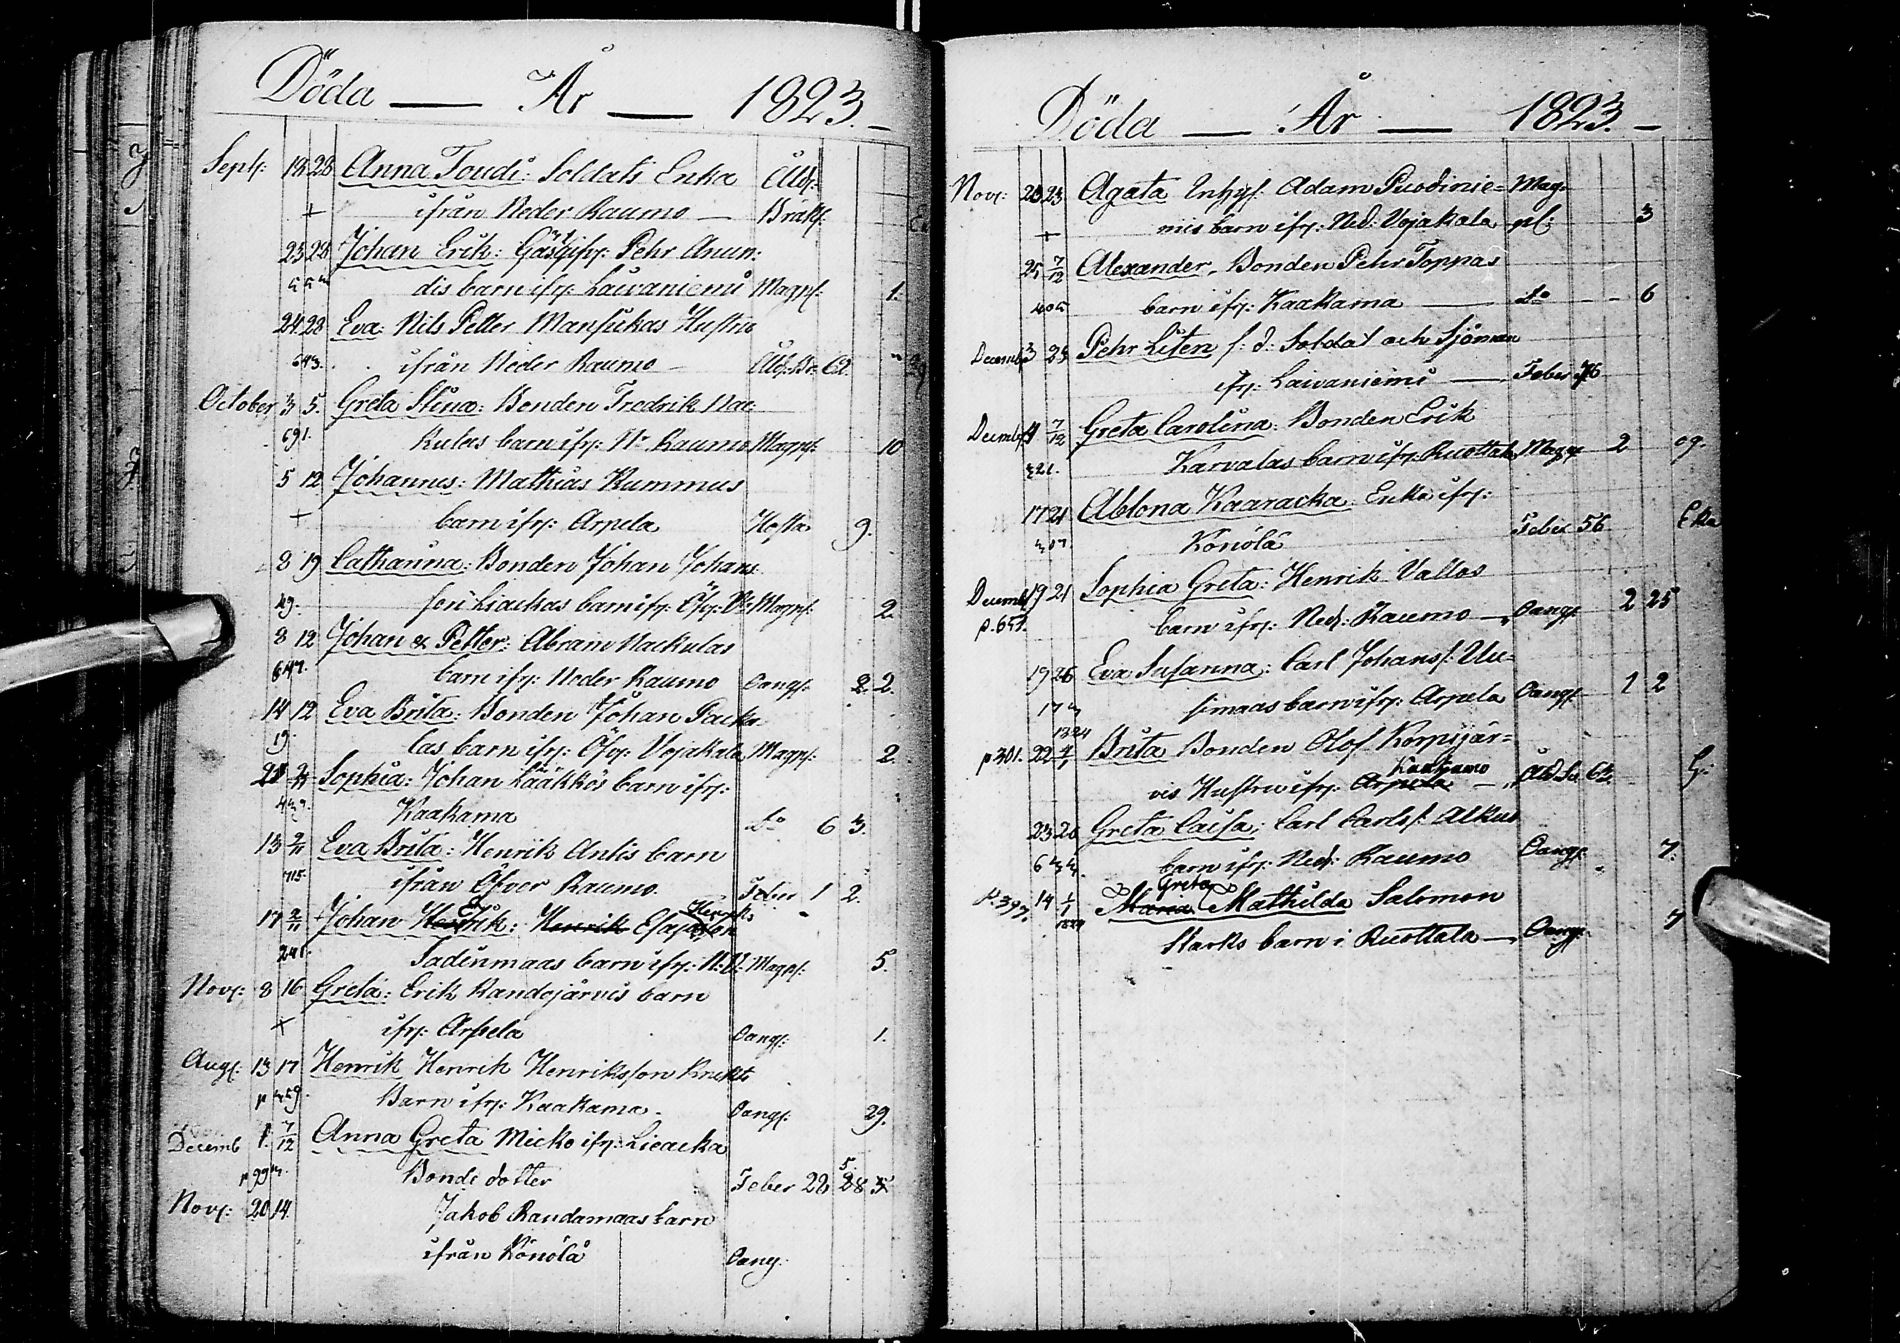 Döda — År — 1823. —
Sept: 18 28 Anna Toudi: Soldats Enka Åld:
+ ifrån Neder Raumo — Bräkl.
23 28 Johan Erik: Gästgifv: Pehr Anun:
dis barn ifr: Laivaniemi Magpl: 1.
24 28 Eva: Nils Petter Mansikas Hustru
643. ifrån Neder Raumo — Åld. Br: 62
October 3 5. Greta Stina: Bonden Fredrik Nac
691. kulas barn ifr: Nr Raumo Magpl: 10
5 12 Johannes: Mathias Kummus
+ barn ifr: Arpela Hosta 9.
8 19 Catharina: Bonden Johan Johans
49. son Liackas barn ifr: Öfv: V: Magpl: 2.
8 12 Johan & Petter: Abram Nackulas
647. barn ifr: Neder Raumo Oangf: 2 2.
14 12 Eva Brita: Bonden Johan Packa
19. las barn ifr: Öfv: Vojakala Magpl: 2.
Sophia: Johan Lääkkös barn ifr:
Kaakama Do 6 3.
13 2/11 Eva Brita: Henrik Antis barn
715. ifrån Öfver Raumo. Feber 1 2.
17 2/11 Johan Henrik: Henrik Esajasson
barn ifr: N: V: Magpl: 5.
Nov: 8 16 Greta: Erik Randojärvis barn
+ ifr: Arpela Oangf: 1.
Aug: 13 17 Henrik Henrik Henriksson Knekts
Barn ifr: Kaakama. Oangf: 29.
Decemb 1. 7/12 Anna Greta Micko ifr: Lieacka
Bonde dotter Feber 22 28 5
Nov: 20 14. Jakob Randamaas barn
ifrån Könölä Oang:
Döda — År — 1823. —
Nov: 23 23 Agata Inhys: Adam Puodinie= Mag=
+ mis barn ifr: Ned: Vojakala pl: 3
25 7/12 Alexander, Bonden Pehr Toppas
405 barn ifr: Kaakama — Do — 6
Decemb 3 25 Pehr Liten f: d: Soldat och Sjöman
ifr: Laivaniemi — Feber 76
Decemb 4 7/12 Greta Carolina: Bonden Erik
321. Karvalas barn ifr: Ruottala Magp 2 og.
17 21 Ablona Kaaracka Enka ifr:
307. Könölä Feber 56 Eka
Decemb 19 21 Sophia Greta: Henrik Vallos
p. 653. barn ifr: Ned: Raumo — Oangf. 2 25
19 26 Eva Susanna: Carl Johans: Uu=
173 simaas barn ifr: Arpela Oangf. 1 2
1824
p 301. 22 4/1 Brita Bonden Olof Korpijär=
Kaakamo
vis Hustru ifr: Arpela — Åld. 63. G:
23 28 Greta Caisa: Carl Carls: Alkus
633. barn ifr: Ned: Raumo Oangf: 7.
Greta
p. 397. 14 1/1 Maria Mathilda Salomon
1824 Starks barn i Ruottala — Oangf. 7